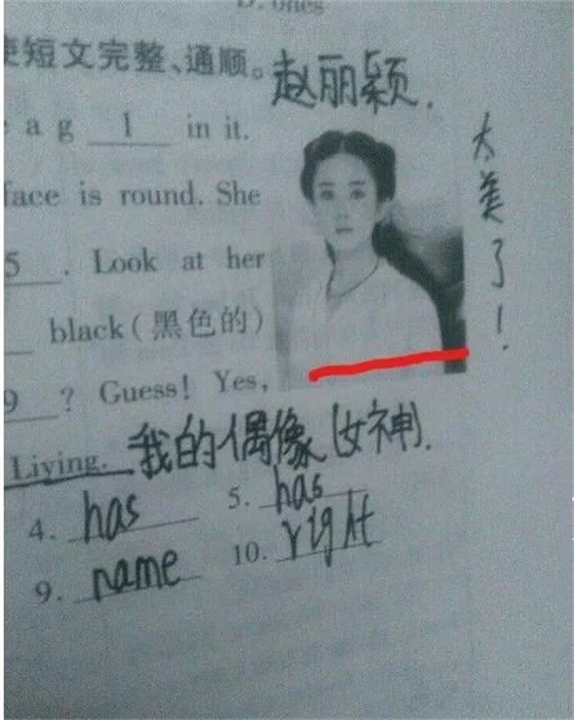 D. ones
使短文完整、通顺。
赵丽颖.
a g 1 in it.
太美了!
face is round. She
5 . Look at her
black(黑色的)
9 ? Guess! Yes,
Liying. 我的偶像(女神).
4. has 5. has
9. name 10. right